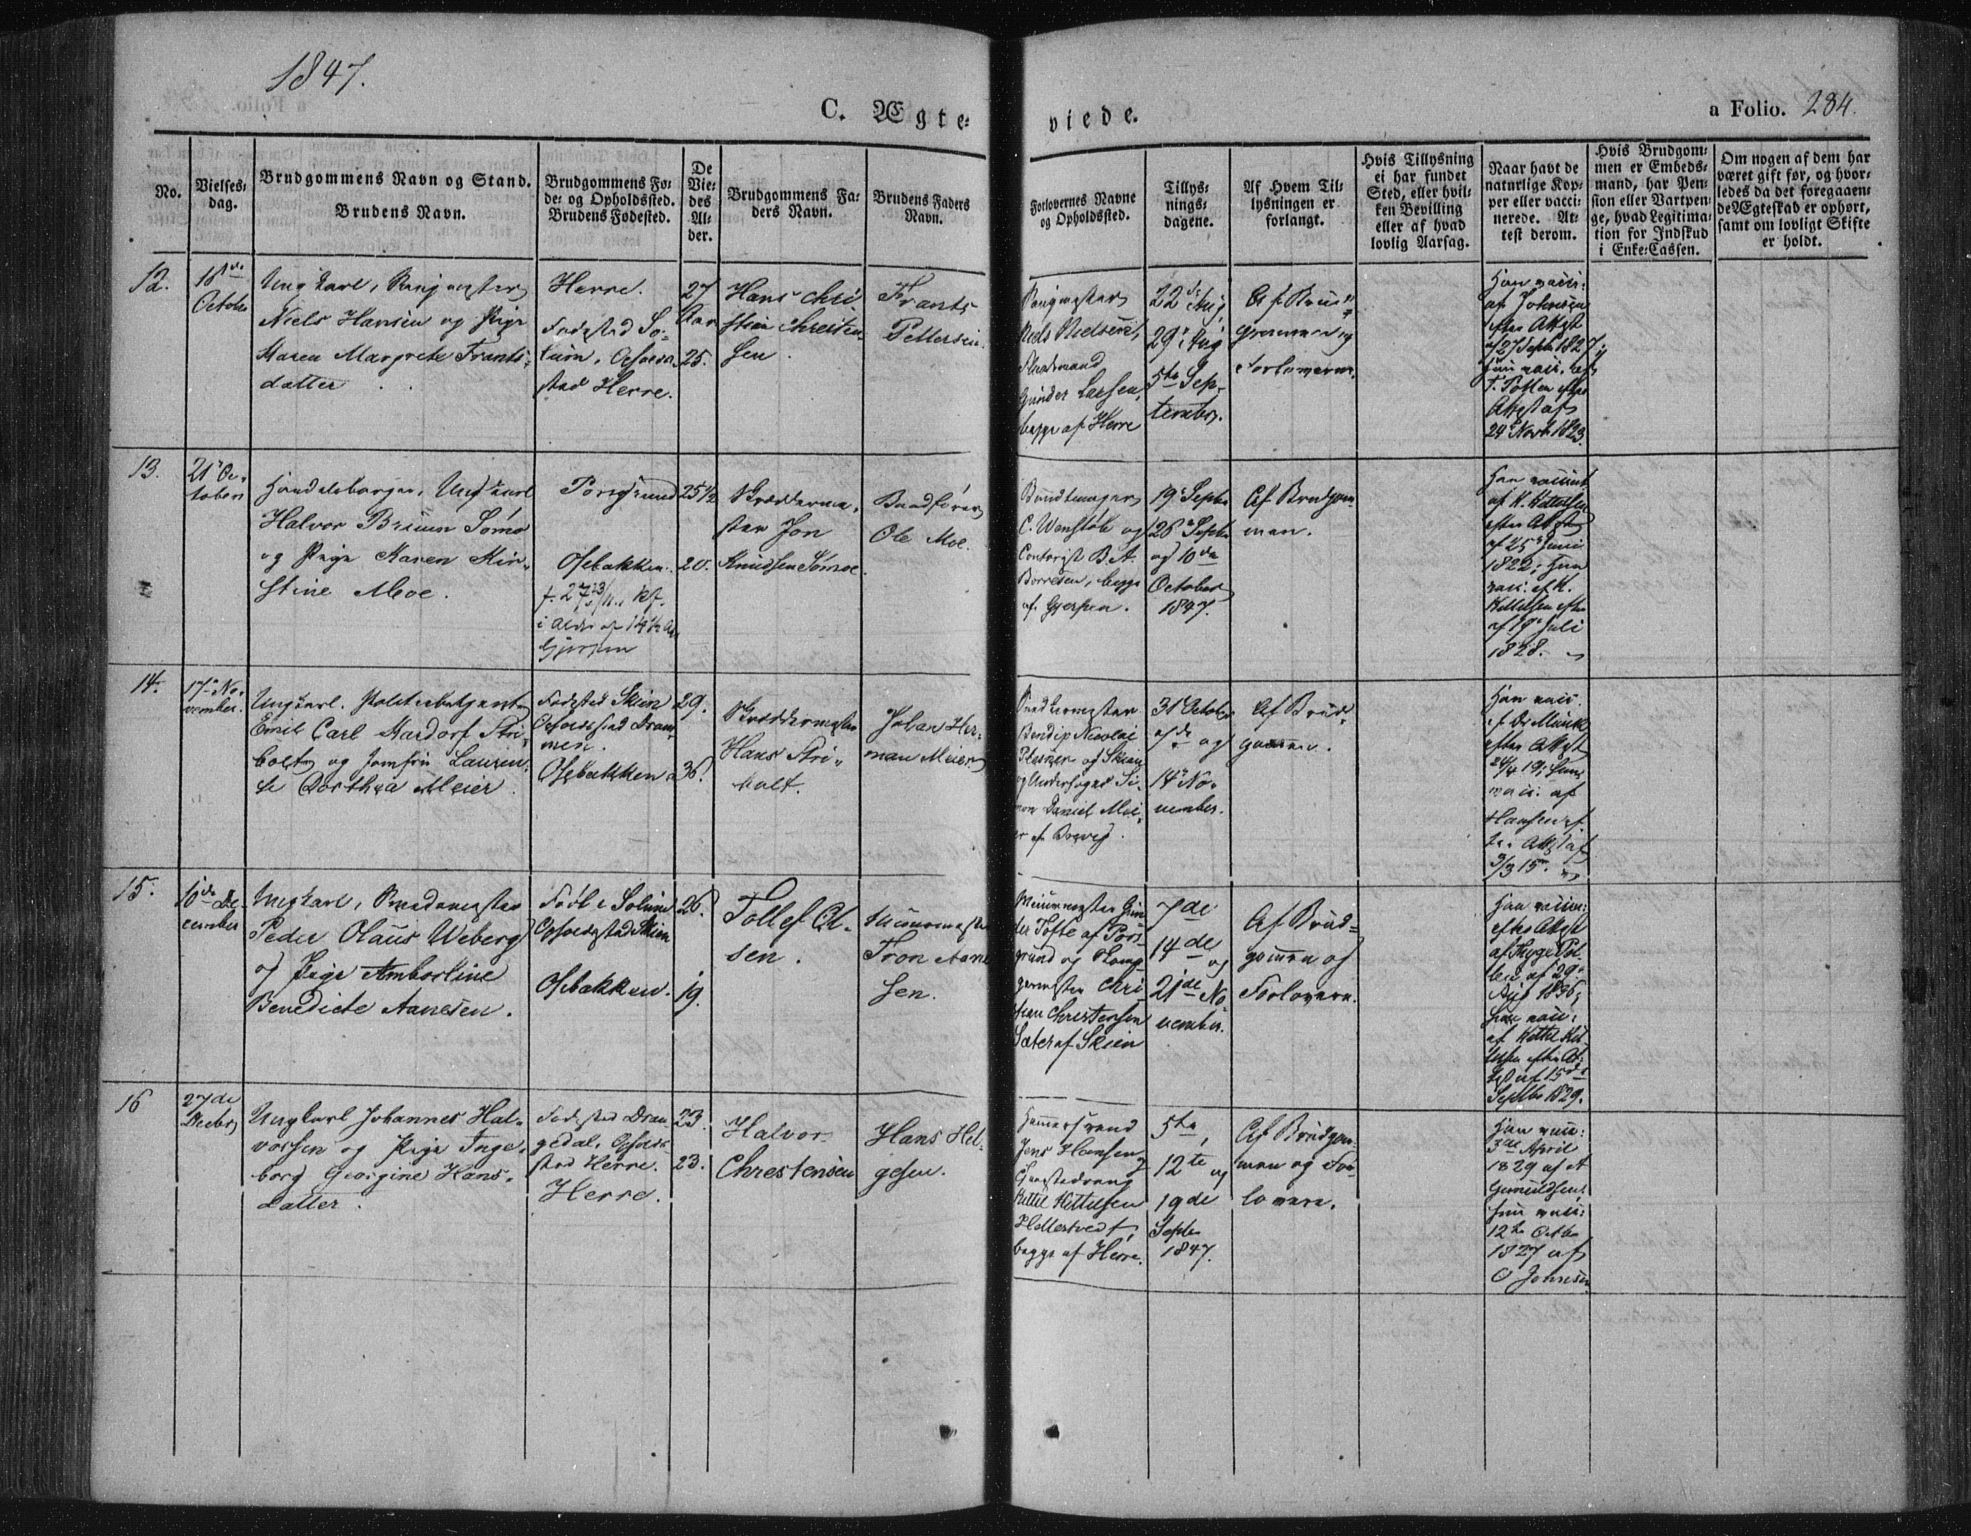 1847.
C. Ægte-
viede.
a Folio. 284.
No.
Vielses-
dag.
Brudgommens Navn og Stand.
Brudens Navn.
Brudgommens Fø-
de- og Opholdssted.
Brudens Fødested.
De
Vie-
des
Al-
der.
Brudgommens Fa-
ders Navn.
Brudens Faders
Navn.
Forlovernes Navne
og Opholdssted.
Tillys-
nings-
dagene.
Af Hvem Til-
lysningen er
forlangt.
Hvis Tillysning
ei har fundet
Sted, eller hvil-
ken Bevilling
eller af hvad
lovlig Aarsag.
Naar havt de
naturlige Kop-
per eller vacci-
nerede. At-
test derom.
Hvis Brudgom-
men er Embeds-
mand, har Pen-
sion eller Vartpen-
ge, hvad Legitima-
tion for Indskud
i Enke-Cassen.
Om nogen af dem har
været gift før, og hvor-
ledes da det foregaaen-
de Ægteskab er ophørt,
samt om lovligt Skifte
er holdt.
12.
October
Ungkarl,
Niels Hansen og Pige
Maren Margrete Frants-
datter
Herre.
Fødested So-
lum, Opholds-
sted Herre.
27
Aar
25.
Hans Chri
stian Christen-
sen.
Frants
Pettersen
Niels Nielsen,
Gunder Larsen,
begge af Herre
22de Aug
29de Aug
5te Sep-
tember.
Af Brud-
gommen og
Forloverne.
Han vacc:
af Johnsen
efter Attest
af 27 Septb 1827;
hun vacc. af
efter
Attest af
24 Novb 1823
13.
21de Oc-
tober
Handelsborger, Ungkarl
Halvor Bruun Sømo
og Pige Karen Kir-
stine Moe.
Porsgrund
Osebakken.
i Alder af 19½ Aar
Gjerpen
25½
20.
Skrædderme-
ster Jon
Knudsen Sømoe.
Ole Moe.
C. Wenstøb og
Contorist B. A.
Borresen, begge
af Gjerpen.
19de Septbr
26de Septbr
og 10de
October
1847.
Af Brudgom-
men.
Han vaccint
af K. Kittelsen
efter Attest
af 25de Juni
1822; hun
vacc. af K.
Kittelsen efter
af 19de Juli
1828.
14.
17de No-
vember.
Ungkarl.
Emil Carl Mardorf Stri-
bolt og Jomfru Lauren-
tse Dorthea Meier.
Fødested Skien
Opholdssted Dram-
men.
Osebakken
29.
36.
Skræddermester
Hans Stri-
bolt.
Johan Her-
man Meier
Bendix Nicolai
Plesner af Skien
og Underfoged Si-
mon Daniel Mei-
er af Brevig.
31te October
og
14de No-
vember.
Af Brud-
gommen.
Han vacc.
af Dr Munk
efter Attest
24/4 19; hun
vacc. af
Hansen ef-
ter Attest af
3/3 15.
15.
10de De-
cember
Ungkarl,
Peder Olaus Weberg
og Pige Ambortine
Benedicte Aanesen.
Født i Solum
Opholdssted Skien
Osebakken.
26.
19.
Tollef Ol-
sen.
Muurmester
Tron Aane
sen.
Muurmester Gun-
der Tofte af Pors-
grund og
Chri-
stian Christensen
Sæter af Skien
7de
14de og
21de No
vember.
Af Brud-
gommen og
Forloverne.
Han vacc:
efter Attest
af
af 29de
Aug 1836,
hun vacc:
af Kittel Kit-
telsen efter At-
test af 15de
Septbr 1829.
16
27de
Decbr
Ungkarl Johannes Hal-
vorsen og Pige Inge-
borg Georgine Hans-
datter.
Fødested Dran-
gedal, Opholds-
sted Herre.
Herre.
23.
23.
Halvor
Christensen
Hans Hel-
gesen.
Jens Hansen
Kittel Kittelsen
begge af Herre.
5te,
12te og
19de
Septbr
1847.
Af Brudgom-
men og For-
lovere.
Han vacc:
3de April
1829 af A
Gunuldsen,
hun vacc:
12te Octbr
1827 af
O Johnsen